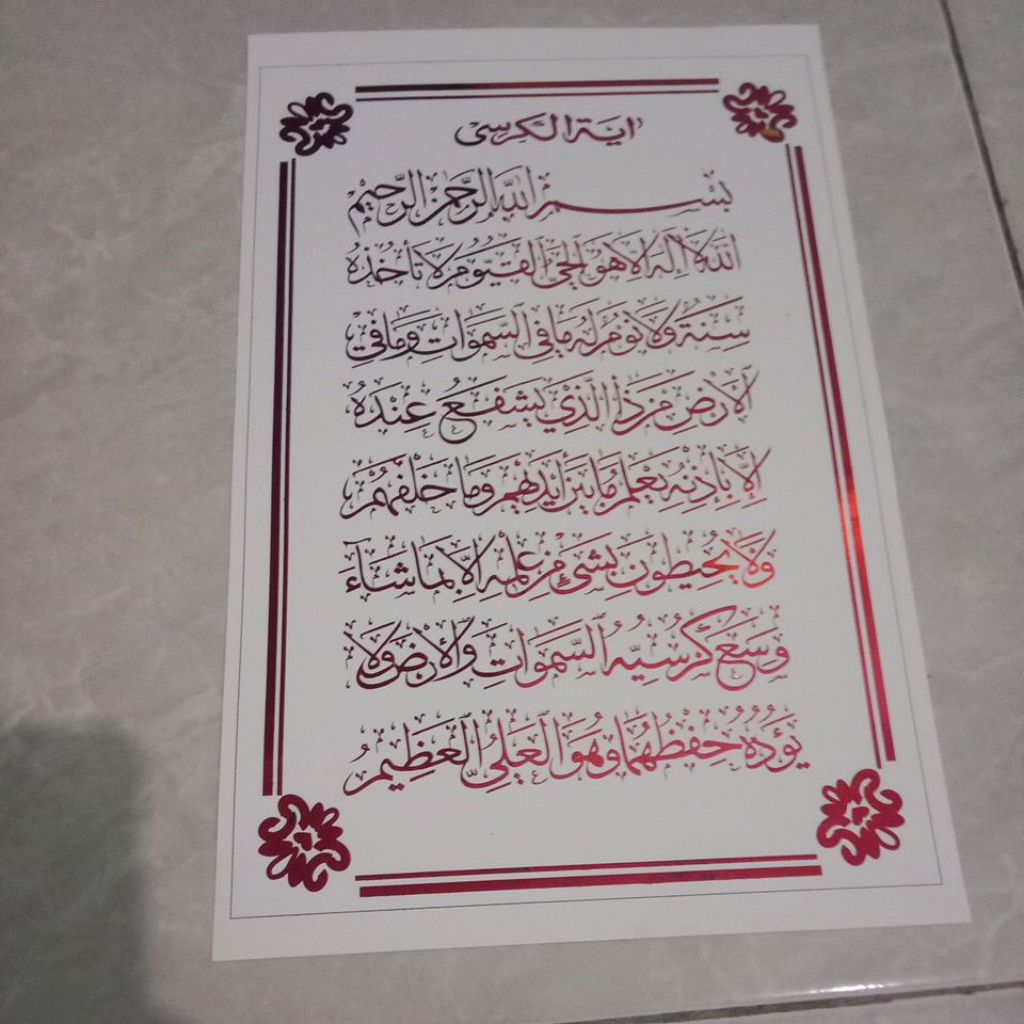 اية الكرسى
بسم الله الرحمن الرحيم
الله لا اله الا هو الحي القيوم لا تأخذه
سنة ولا نوم له ما في السموات وما في
الأرض من ذا الذي يشفع عنده
إلا بإذنه يعلم ما بين أيديهم وما خلفهم
ولا يحيطون بشىء من علمه الا بما شاء
وسع كرسيه السموات والأرض ولا
يؤده حفظهما وهو العلي العظيم